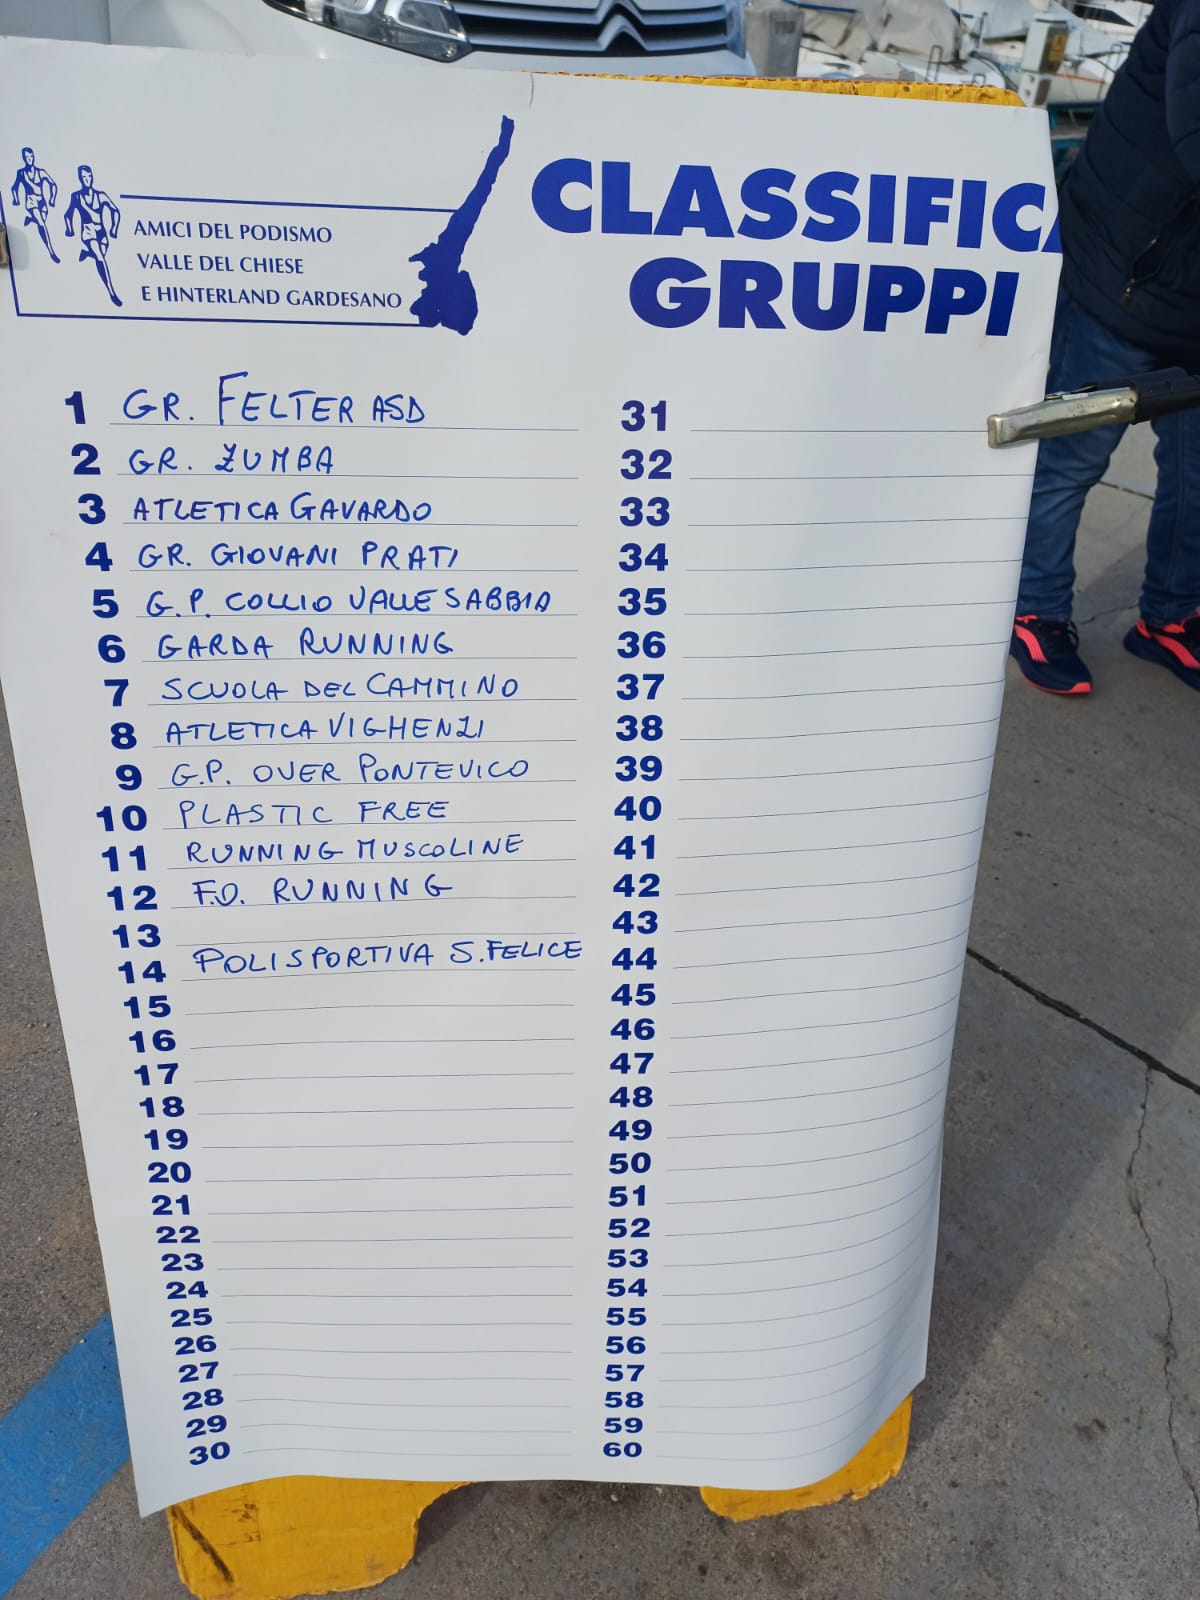 AMICI DEL PODISMO
VALLE DEL CHIESE
E HINTERLAND GARDESANO
CLASSIFICA
GRUPPI
1 GR. FELTER ASD
2 GR. ZUMBA
3 ATLETICA GAVARDO
4 GR. GIOVANI PRATI
5 G.P. COLLIO VALLE SABBIA
6 GARDA RUNNING
7 SCUOLA DEL CAMMINO
8 ATLETICA VIGHENZI
9 G.P. OVER PONTEVICO
10 PLASTIC FREE
11 RUNNING MUSCOLINE
12 F.O. RUNNING
13
14 POLISPORTIVA S. FELICE
15
16
17
18
19
20
21
22
23
24
25
26
27
28
29
30
31
32
33
34
35
36
37
38
39
40
41
42
43
44
45
46
47
48
49
50
51
52
53
54
55
56
57
58
59
60